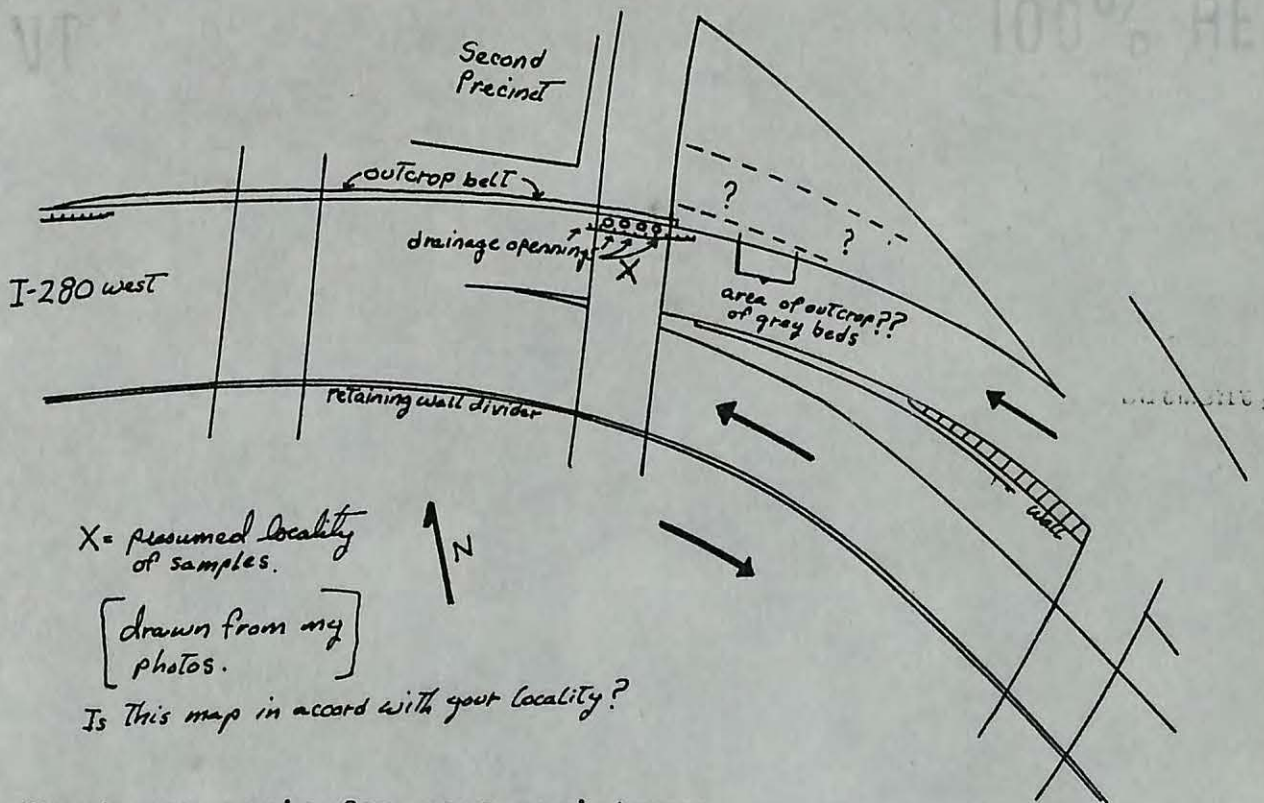 VT
100% HE
Second
Precinct
outcrop belt
drainage openning
X
I-280 west
?
?
area of outcrop??
of gray beds
retaining wall divider
wall
X = presumed locality
of samples.
N
[drawn from my
photos.]
Is This map in accord with your locality?